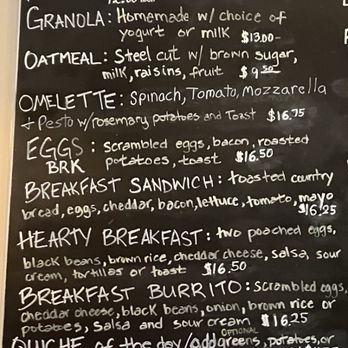 GRANOLA: Homemade w/ choice of
yogurt or milk $13.00-
OATMEAL: Steel cut w/ brown sugar,
milk, raisins, fruit $9.50
OMELETTE: Spinach, Tomato, Mozzarella
+ Pesto w/rosemary potatoes and Toast $16.75
EGGS: scrambled eggs, bacon, roasted
BRK potatoes, toast $16.50
BREAKFAST SANDWICH: toasted country
bread, eggs, cheddar, bacon, lettuce, tomato, mayo
$16.25
HEARTY BREAKFAST: two poached eggs,
black beans, brown rice, cheddar cheese, salsa, sour
cream, tortillas or toast $16.50
BREAKFAST BURRITO: scrambled eggs,
cheddar cheese, black beans, onion, brown rice or
potatoes, salsa and sour cream $16.25
OPTIONAL
QUICHE of the day/add greens, potatoes, or